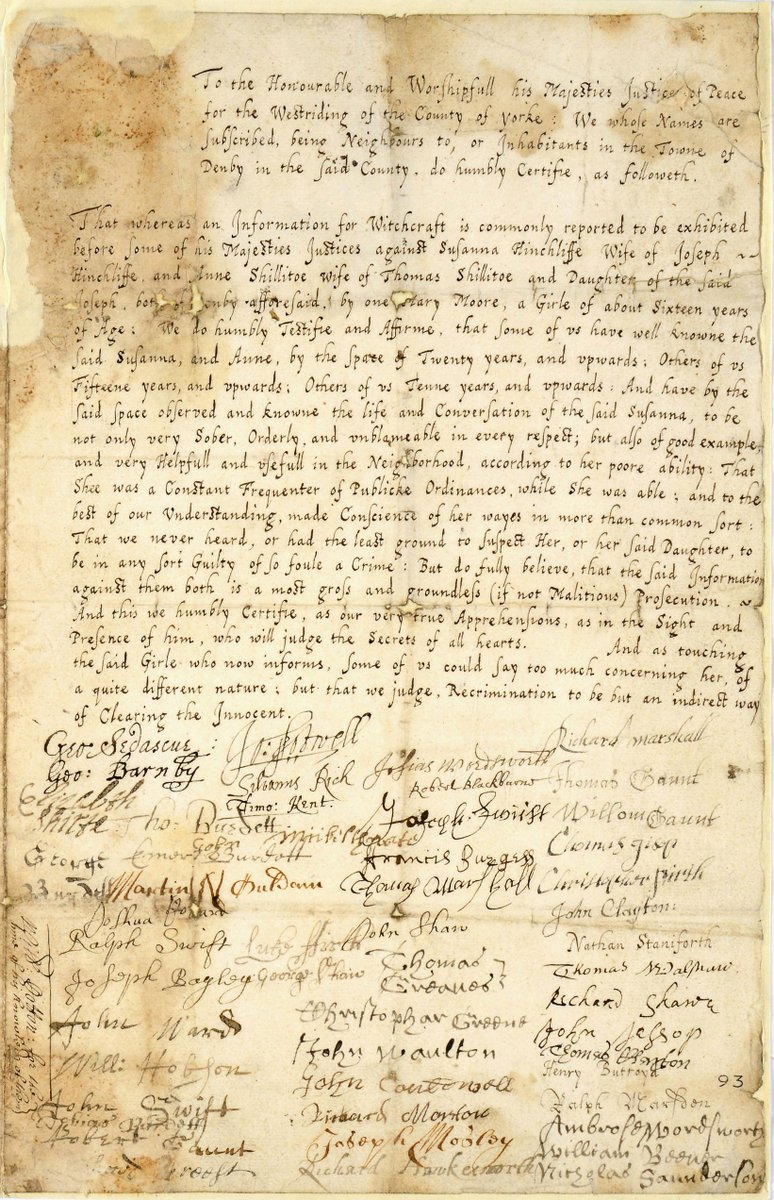 To the Honourable and Worshipfull his Majesties Justice of Peace
for the Westriding of the County of Yorke : We whose Names are
subscribed, being Neighbours to, or Inhabitants in the Towne of
Denby in the said County, do humbly Certifie, as followeth.
That whereas an Information for Witchcraft is commonly reported to be exhibited
before some of his Majesties Justices against Susanna Hinchliffe Wife of Joseph
Hinchliffe, and Anne Shillitoe wife of Thomas Shillitoe and Daughter of the said
Joseph, both of Denby afforesaid, by one Mary Moore, a Girle of about Sixteen years
of Age : We do humbly Testifie and Affirme, that some of vs have well knowne the
said Susanna, and Anne, by the space of Twenty years, and upwards ; Others of vs
Fifteene years, and vpwards ; Others of vs Tenne years, and vpwards : And have by the
said space observed and knowne the life and Conversation of the said Susanna, to be
not only very Sober, Orderly, and vnblameable in every respect ; but also of good example,
and very Helpfull and vsefull in the Neighborhood, according to her poore ability : That
Shee was a Constant Frequenter of Publicke Ordinances, while She was able ; and to the
best of our Understanding, made Conscience of her wayes in more than common sort :
That we never heard, or had the least ground to suspect Her, or her said Daughter, to
be in any sort Guilty of so foule a Crime : But do fully believe, that the said Information
against them both is a most gross and groundless (if not Malitious) Prosecution.
And this we humbly Certifie, as our very true Apprehensions, as in the Sight and
Presence of him, who will judge the Secrets of all hearts. And as touching
the said Girle who now informs, some of vs could say too much concerning her, of
a quite different nature ; but that we judge, Recrimination to be but an indirect way
of Clearing the Innocent.
Geo: Sedascue : Richard Marshall
Geo: Barnby Silvanus Rich Josias Wordsworth
Robert Blackburne Thomas Gaunt
Timo: Kent.
Tho: Burdett Joseph Swift William Gaunt
George Burdett Francis Burgess
Martin Thomas Marshall Christopher
John Clayton:
Joshua
Ralph Swift Luke John Shaw Nathan Staniforth
Joseph Bagley George Shaw Thomas Greaves Thomas
Richard Shawe
John Ward Christophar Greene John Jessop
Will: Hobson John Waulton Thomas
Henry
93
John John Ralph Marsden
John Swift Richard Morton Ambrose Wordsworth
Robert Gaunt Joseph Mosley William Beever
Richard Nicholas Saunderson